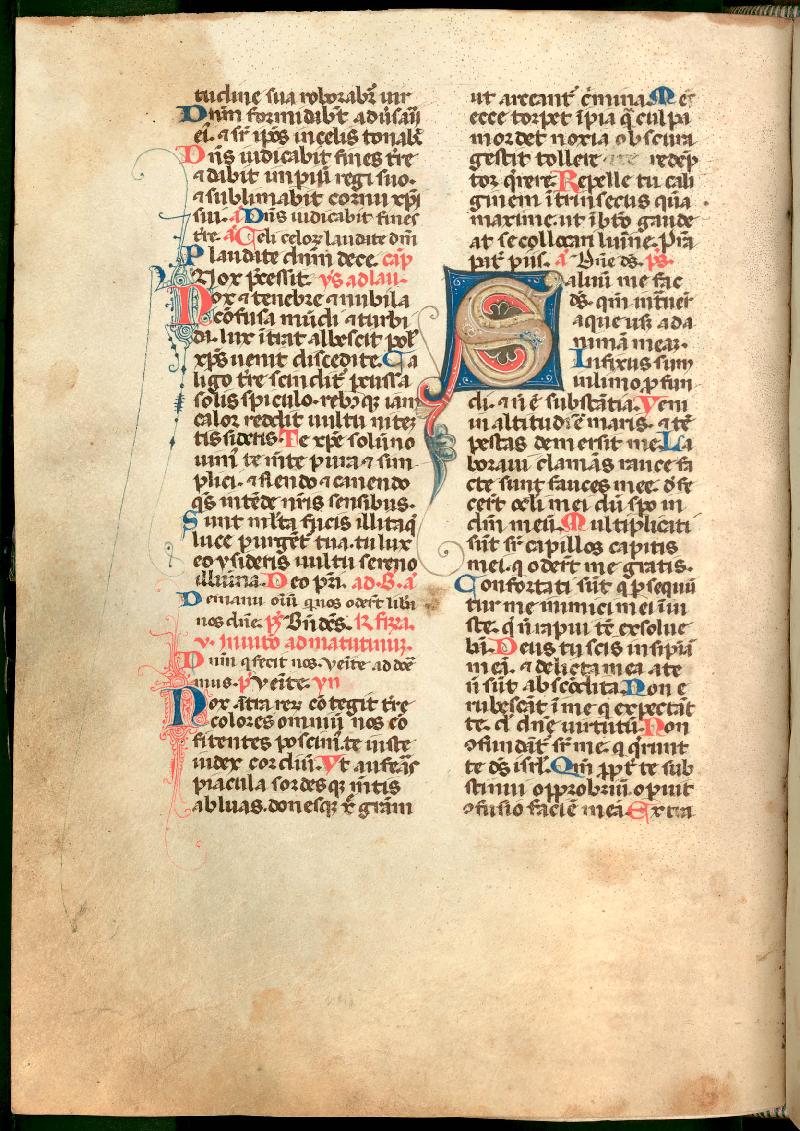 tudine sua roborabr̃ uir
Dñm formidabt̃ aduſarij
ei. ⁊ sr̃ ip̃os in celis tonabit
Dñs iudicabit fines tr̃e
⁊ dabit imp̃iũ regi suo.
⁊ sublimabit cornu xp̃i
sui. a Dñs iudicabit fines
tr̃e. a Celi celoꝝ laudate dm̃
Plaudite dm̃ni dece. cap̃
Nox p̃cessit. ys ad lau.
Nox ⁊ tenebre ⁊ nubila
confusa mũdi ⁊ turbi
da. lux ĩtrat albescit pol
xp̃s uenit discedite. Ca
ligo tr̃e scindit̃ p̃cussa
solis spiculo. rebꝰqꝫ iam
calor reddit̃ uultu nite
tis sideris. Te xp̃e solũ no
uimꝰ te m̃te pura ⁊ sim
plici. ⁊ flendo ⁊ canendo
qs̃ intẽde nr̃is sensibus.
Sunt ml̃ta fucis illita q̃
luce purgent̃ tua. tu lux
eoy sideris uultu sereno
illũina. Deo pr̃i. ad. B. a
De manu oĩũ qui nos odert̃ libã
nos dñe. ps̃ Bñdc̃s. R̃ firia.
v. inuito ad matutinũ.
Dñm q̃ fecit nos. Venite adore
mus. p̃ venite. yn
Nox atra reꝝ cõtegit tr̃e
colores omniũ nos co
fitentes poscimꝰ te iuste
iudex cordiũ. Vt auferas
piacula sordesqꝫ m̃tis
abluas. donesqꝫ xp̃e grãm
ut arceant̃ c̃mina. Mẽs
ecce torpet ĩpia q̃ culpa
mordet noxia obscura
gestit tollere ⁊ te redẽp
tor q̃rere. Repelle tu cali
ginem ĩtrinsecus quã
maxime. ut ĩ bt̃o gaude
at se collocari lum̃e. P̃sta
pat̃ piis. a Dñe ds̃. ps̃.
Saluũ me fac
ds̃. qm̃ intr̃uer
aque usqꝫ ad a
nimã meã.
Infixus sum
in limo p̃fun
di. ⁊ nõ ẽ substãtia. Veni
in altitudinẽ maris. ⁊ tẽ
pestas demersit me. La
boraui clamãs rauce fa
cte sunt fauces mee. defe
cert̃ ocl̃i mei dũ spo in
dm̃ meũ. Multiplicati
sũt sr̃ capillos capitis
mei. q̃ odert̃ me gratis.
Confortati sũt q̃ p̃sequũ
tur me inimici mei ĩiu
ste. q̃ ñ rapui tc̃ exsolue
bã. Deus tu scis insipiã
meã. ⁊ delicta mea a te
ñ sũt abscõdita. Non e
rubescãt ĩ me q̃ expectãt
te. dñe dñe uirtutũ. Non
ꝯfundãt̃ sr̃ me. q̃ q̃runt
te ds̃ isrl̃. Qm̃ ꝓpt̃ te sub
stinui opprobriũ opuit
ꝯfusio faciẽ meã. Extra